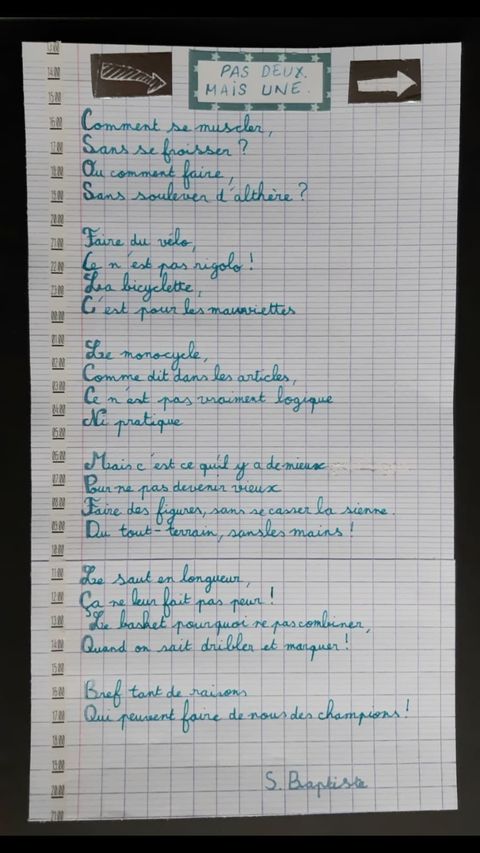 PAS DEUX.
MAIS UNE.
13:00
14:00
15:00
16:00 Comment se muscler,
17:00 Sans se froisser ?
18:00 Ou comment faire,
19:00 Sans soulever d'althère ?
20:00
21:00 Faire du vélo,
22:00 Ce n'est pas rigolo !
23:00 La bicyclette,
00:00 C'est pour les mauviettes
01:00
02:00 Le monocycle,
03:00 Comme dit dans les articles,
04:00 Ce n'est pas vraiment logique
05:00 Ni pratique
06:00
07:00 Mais c'est ce qu'il y a de mieux
08:00 Pour ne pas devenir vieux
09:00 Faire des figures, sans se casser la sienne.
10:00 Du tout-terrain, sans les mains !
11:00 Le saut en longueur,
12:00 Ça ne leur fait pas peur !
13:00 Le basket pourquoi ne pas combiner,
14:00 Quand on sait dribler et marquer !
15:00
16:00 Bref tant de raisons
17:00 Qui peuvent faire de nous des champions !
18:00
19:00
20:00 S. Baptiste
21:00